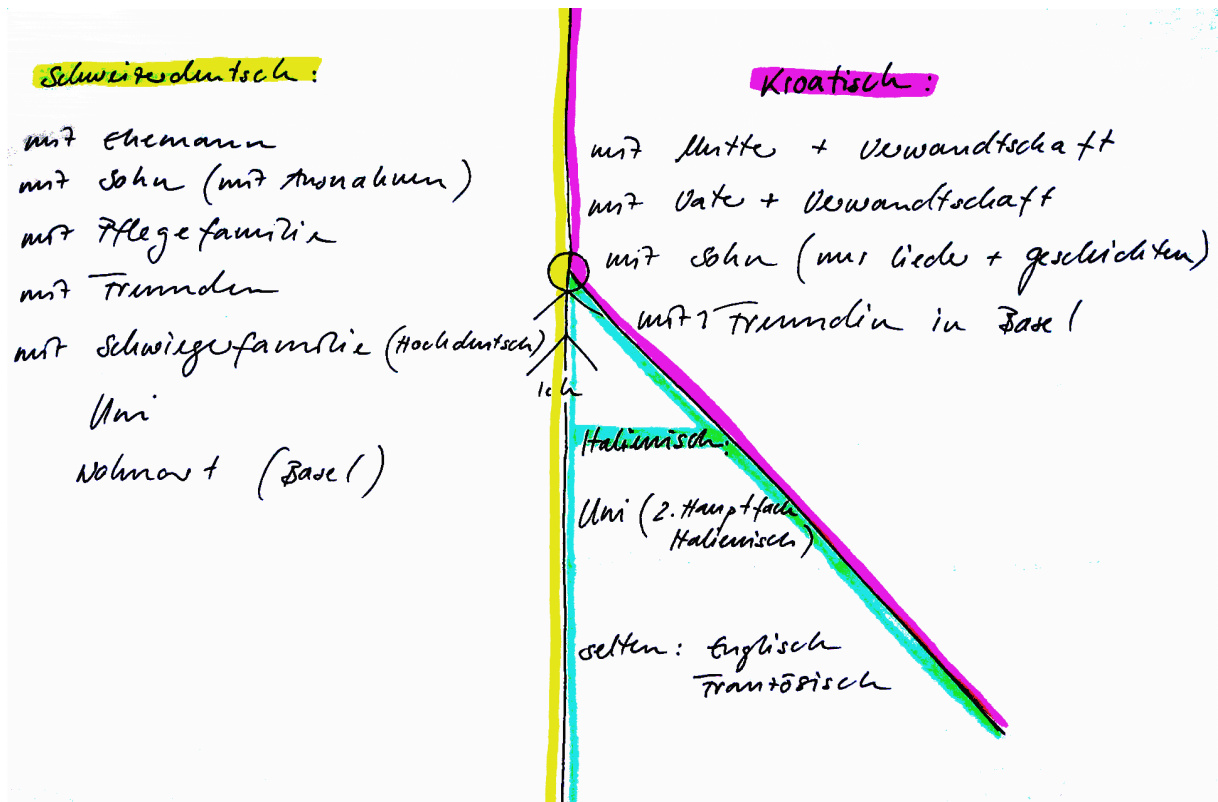 Schweizerdeutsch:
mit Ehemann
mit Sohn (mit Ausnahmen)
mit Pflegefamilie
mit Freunden
mit Schwiegerfamilie (Hochdeutsch)
Uni
Wohnort (Basel)
Kroatisch:
mit Mutter + Verwandtschaft
mit Vater + Verwandtschaft
mit Sohn (nur Lieder + Geschichten)
mit 1 Freundin in Basel
Ich
Italienisch:
Uni (2. Hauptfach
Italienisch)
selten: Englisch
Französisch